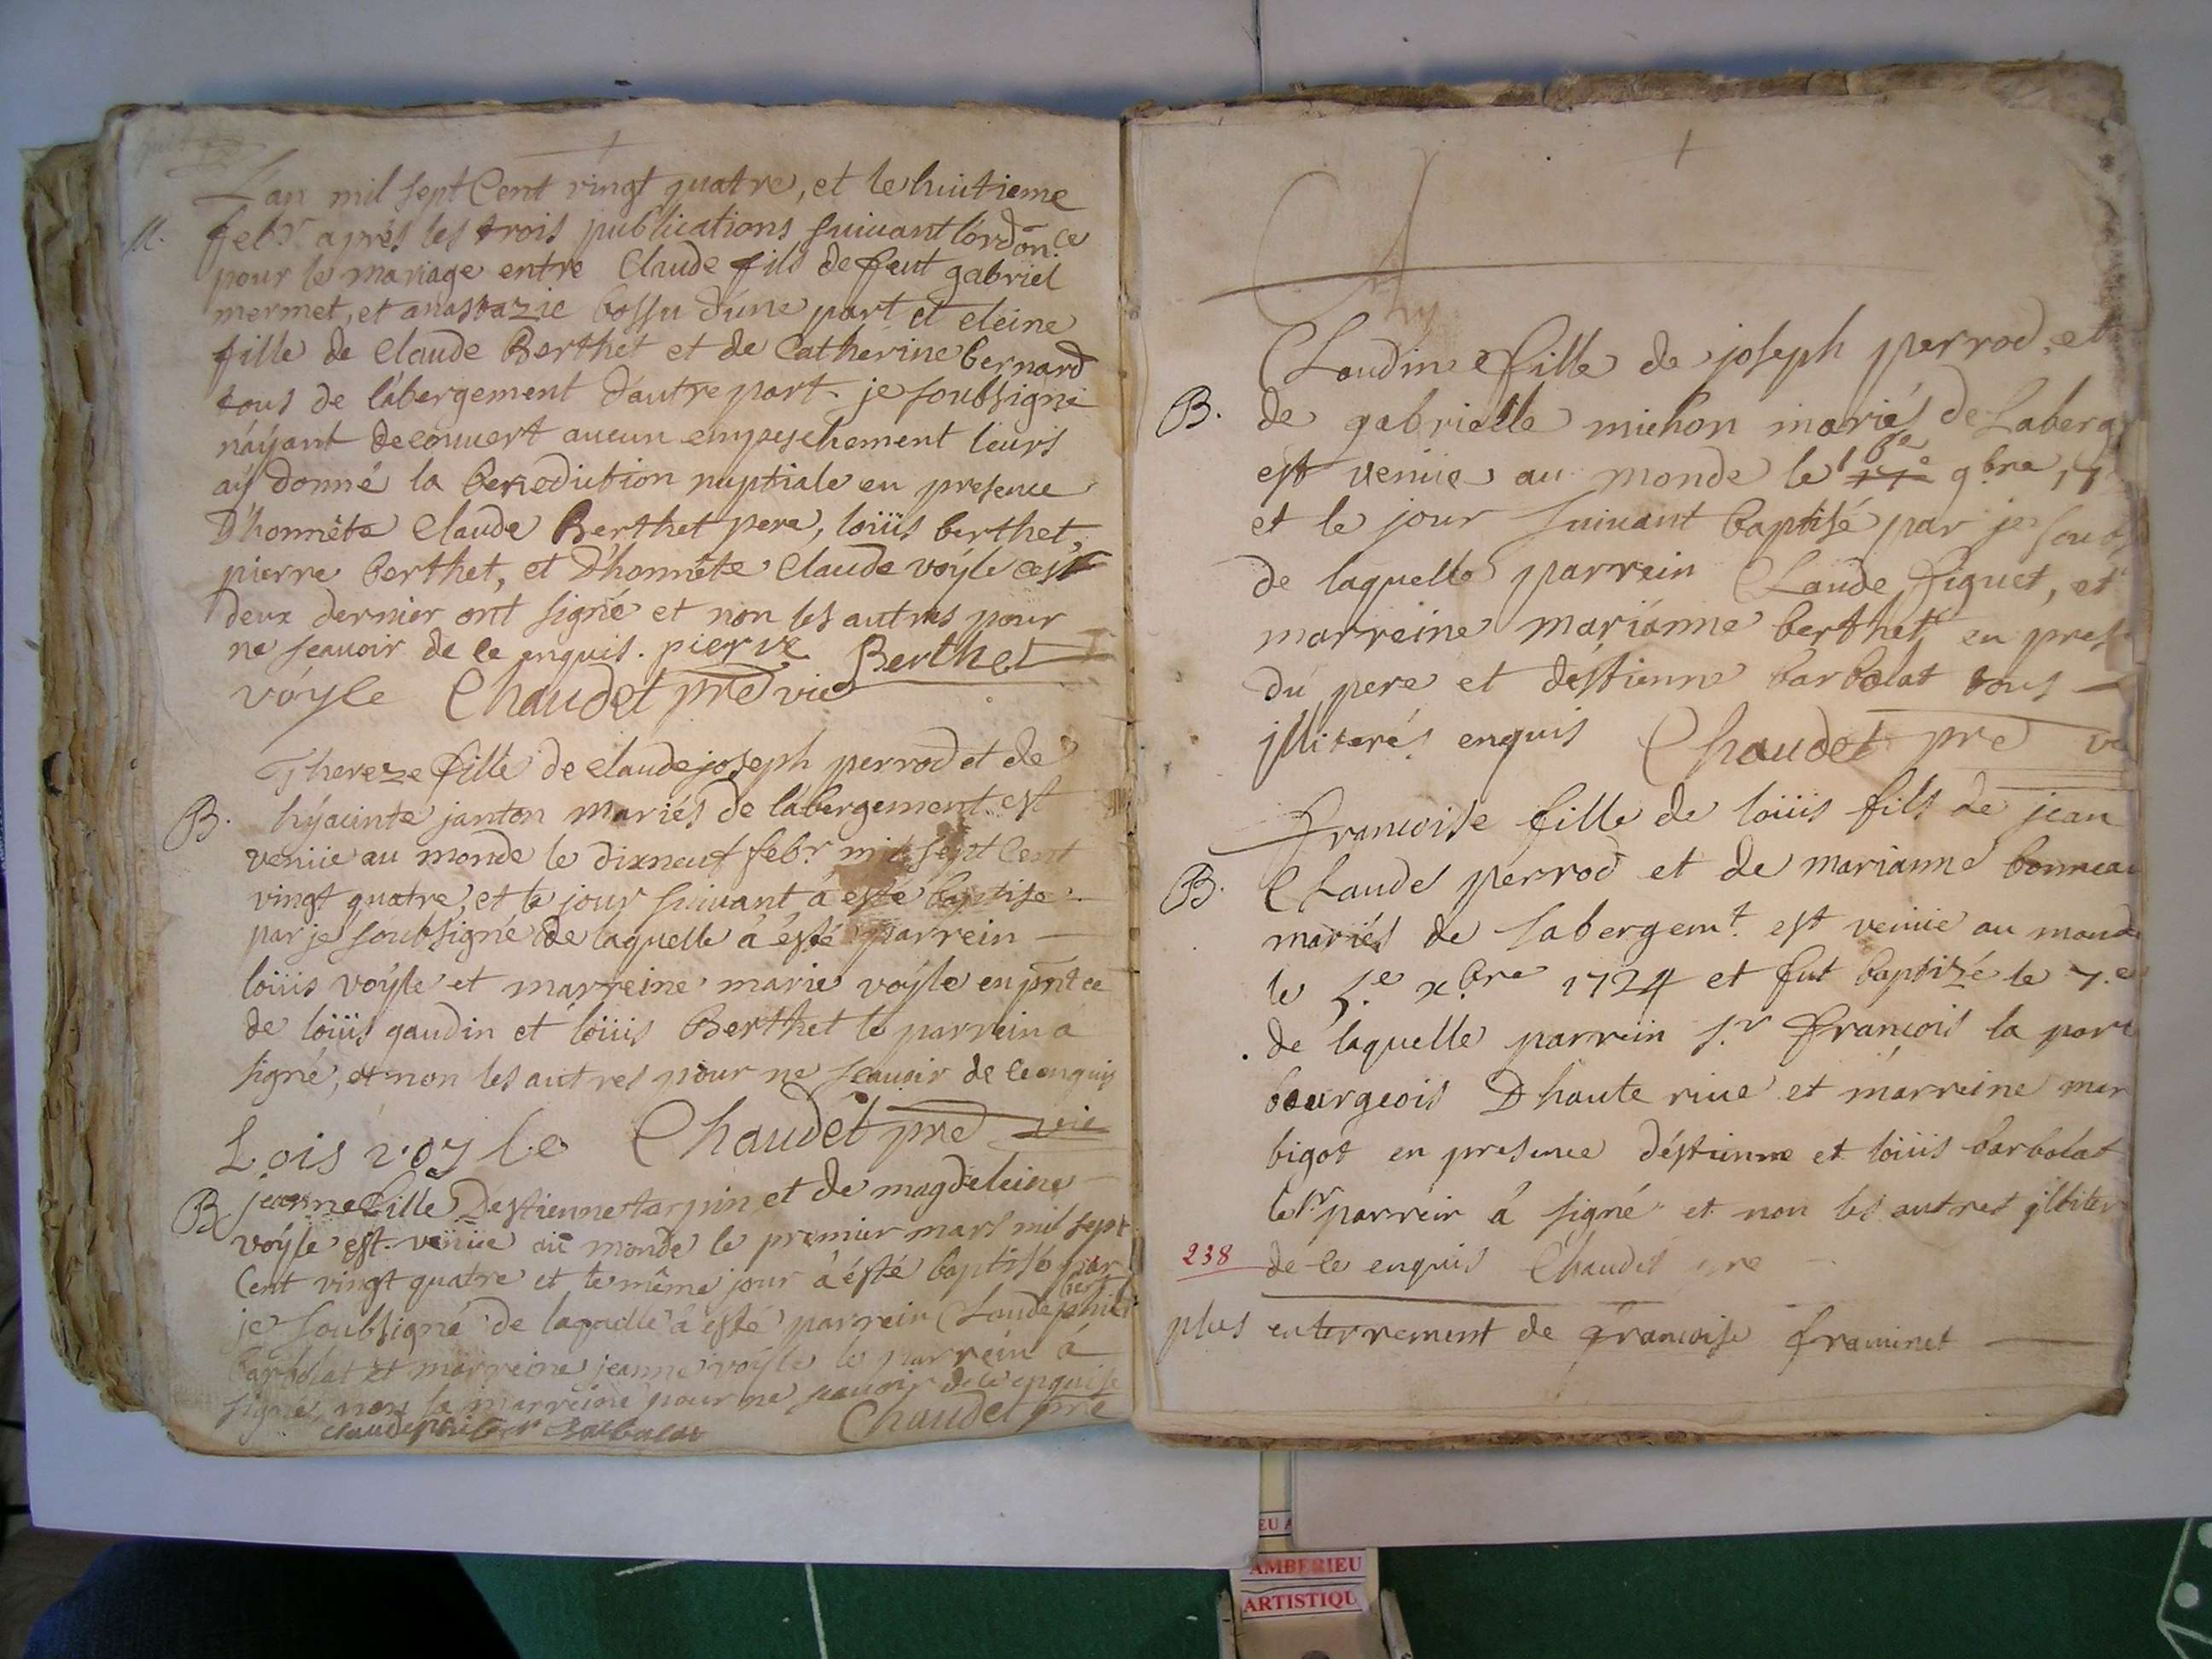 Lan mil sept Cent vingt quatre, et le huitieme
M. febr. aprés les trois publications suivant l'ordon.ce
pour le mariage entre Claude fils de feut gabriel
mermet, et anastazie bossu d'une part et eleine
fille de Claude Berthet et de Catherine bernard
tous de labergement d'autre part. je soubsigné
n'aÿant decouvert aucun empeschement leurs
aÿ donné la Benediction nuptiale en presence
D'honnéte Claude Berthet pere, loüis berthet,
pierre berthet, et D'honnéte Claude voÿle cest
deux dernier ont signé et non les autres pour
ne scauoir de ce enquis. pierre Berthet
vóyle Chaudet pre vic
Thereze fille de claude joseph perrod et de
B. hÿacinte janton mariés de labergement est
venüe au monde le dixneuf febr. mil sept Cent
vingt quatre, et le jour suivant á esté baptisé
par je soubsigné de laquelle á ésté parrein
loüis voÿle et marreine marie voÿle en pntce
de loüis gaudin et loüis Berthet le parrein a
signé, et non les autres pour ne scauoir de ce enquis
Lois voyle Chaudet pre vic
B jeanne fille Destienne tarpin et de magdeleine
voÿle est venüe au monde le premier mars mil sept
Cent vingt quatre et le même jour á ésté baptisé par
je soubsigné de laquelle á ésté parrein Claude philibert
barbolat et marreine jeanne voÿle le parrein á
signé, non la marreine pour ne scauoir de ce enquise
claude philibert Balbolat Chaudet pre
Claudine fille de joseph perrod, et
B. de gabrielle michon mariés de Laberg
est venüe au monde le 16e 17e 9.bre 17
et le jour suivant baptisé par je soubs
de laquelle parrein Claude figuet, et
marreine mariánne berthet en pres
du pere et déstienne barbolat tous
illiterés enquis Chaudet pre vic
francoise fille de loüis fils de jean
B. Claude perrod et de marianne bonneau
mariés de labergem.t est venüe au monde
le 5.e x.bre 1724 et fut baptizé le 7.e
de laquelle parrein s.r francois la port
bourgeois D haute riue et marreine mar
bigot en presence déstienne et loüis barbolat
le sr parrein á signé et non les autres illiter
238 de ce enquis Chaudet pre
plus enterrement de francoise framinet
EU A
AMBERIEU
ARTISTIQU